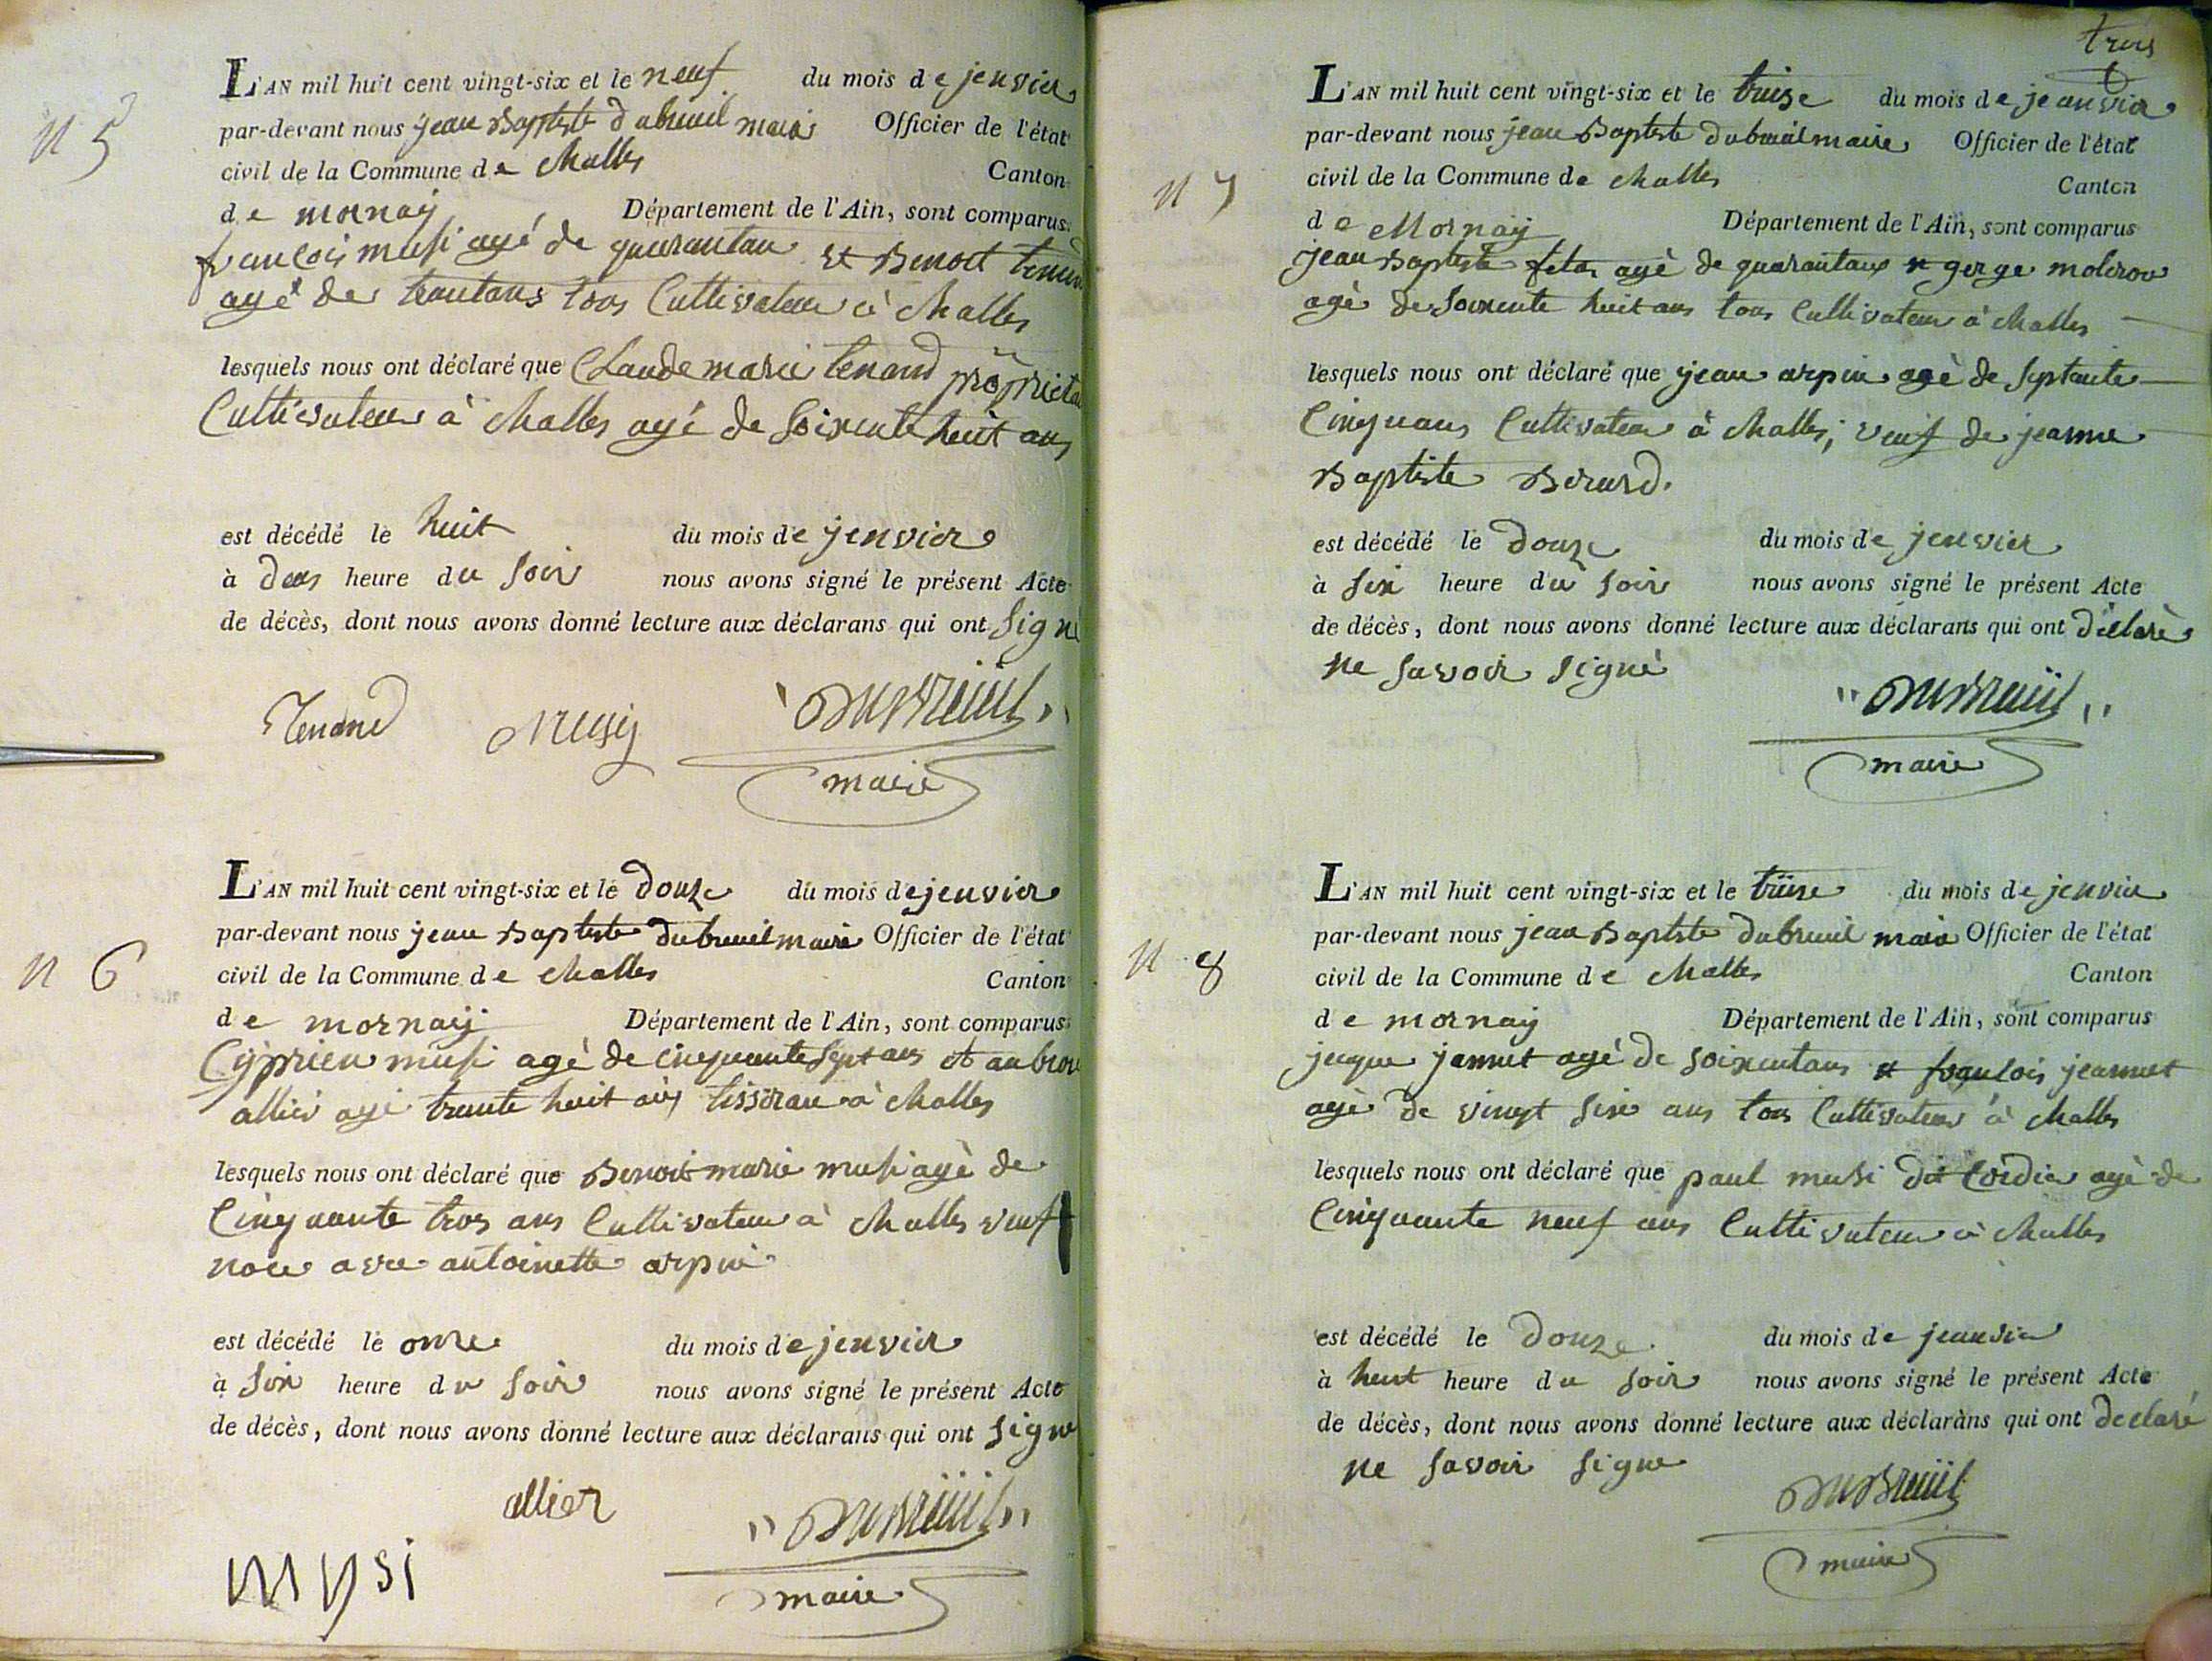 N 5
L'AN mil huit cent vingt-six et le neuf du mois de jenvier
par-devant nous jean Baptiste dubreuil maire Officier de l'état
civil de la Commune de Challes Canton
de mornay Département de l'Ain, sont comparus
francois musi agé de quarantan et Benoit
agé de trantans tous Cultivateur à Challes
lesquels nous ont déclaré que Claude marie tenand
Cultivateur à Challes agé de Soixente huit ans
est décédé le huit du mois de jenvier
à deus heure du Soir nous avons signé le présent Acte
de décès, dont nous avons donné lecture aux déclarans qui ont Signé
Tenand Musy Dubreüil
maire
N 6
L'AN mil huit cent vingt-six et le douze du mois de jenvier
par-devant nous jean Baptiste dubreuil maire Officier de l'état
civil de la Commune de Challes Canton
de mornay Département de l'Ain, sont comparus
Cyprien musi agè de cinquante Sept ans et
allier agé trante huit ans à Challes
lesquels nous ont déclaré que Benoit marie musi agè de
Cinquante trois ans Cultivateur à Challes veuf
antoinette arpin
est décédé le onze du mois de jenvier
à Six heure du Soir nous avons signé le présent Acte
de décès, dont nous avons donné lecture aux déclarans qui ont Signe
allier Dubreüil
mysi
maire
trois
N 7
L'AN mil huit cent vingt-six et le treize du mois de jeanvier
par-devant nous jean Baptiste dubreuil maire Officier de l'état
civil de la Commune de Challes Canton
de Mornay Département de l'Ain, sont comparus
jean Baptiste agè de quarantans et
agè de Soixente huit ans tous Cultivateur à Challes
lesquels nous ont déclaré que jean arpin agè de Septante
Cinq ans Cultivateur à Challes; veuf de jeanne
Baptiste Berard.
est décédé le douze du mois de jenvier
à Six heure du Soir nous avons signé le présent Acte
de décès, dont nous avons donné lecture aux déclarans qui ont déclarè
ne Savoir Signè
Dubreüil
maire
N 8
L'AN mil huit cent vingt-six et le treise du mois de jenvier
par-devant nous jean Baptiste dubreuil maire Officier de l'état
civil de la Commune de Challes Canton
de mornay Département de l'Ain, sont comparus
jannet agé de Soixentans et jeannet
agè de vingt Six ans tous Cultivateur à Challes
lesquels nous ont déclaré que paul musi dit Cordier agè de
Cinquante neuf ans Cultivateur à Challes
est décédé le douze du mois de jeanvier
à huit heure du Soir nous avons signé le présent Acte
de décès, dont nous avons donné lecture aux déclarans qui ont declaré
ne Savoir Signe
Dubreüil
maire